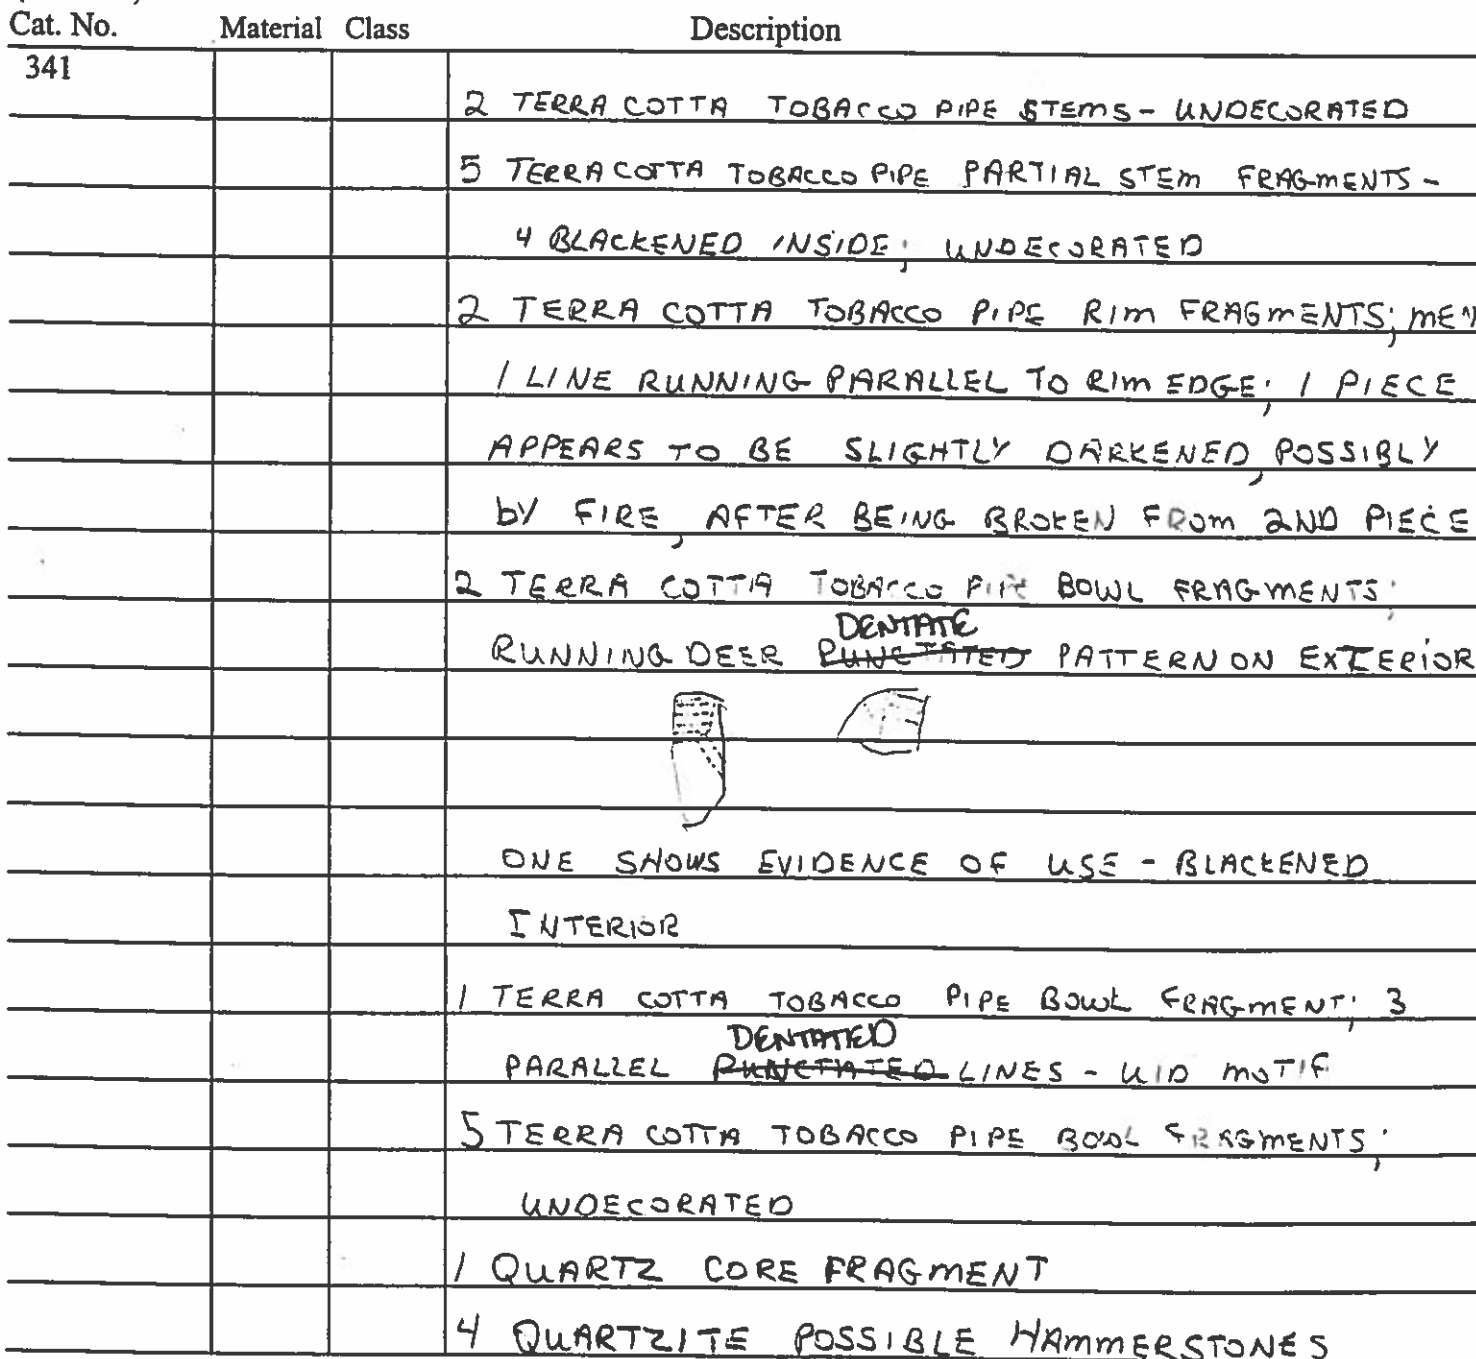 Cat. No. Material Class Description
341
2 TERRA COTTA TOBACCO PIPE STEMS - UNDECORATED
5 TERRA COTTA TOBACCO PIPE PARTIAL STEM FRAGMENTS -
4 BLACKENED INSIDE; UNDECORATED
2 TERRA COTTA TOBACCO PIPE RIM FRAGMENTS; MEN
1 LINE RUNNING PARALLEL TO RIM EDGE; 1 PIECE
APPEARS TO BE SLIGHTLY DARKENED, POSSIBLY
by FIRE, AFTER BEING BROKEN FROM 2ND PIECE
2 TERRA COTTA TOBACCO PIPE BOWL FRAGMENTS;
DENTATE
RUNNING DEER PUNCTATED PATTERN ON EXTERIOR
ONE SHOWS EVIDENCE OF USE - BLACKENED
INTERIOR
1 TERRA COTTA TOBACCO PIPE BOWL FRAGMENT; 3
DENTATED
PARALLEL PUNCTATED LINES - UID MOTIF
5 TERRA COTTA TOBACCO PIPE BOWL FRAGMENTS;
UNDECORATED
1 QUARTZ CORE FRAGMENT
4 QUARTZITE POSSIBLE HAMMERSTONES